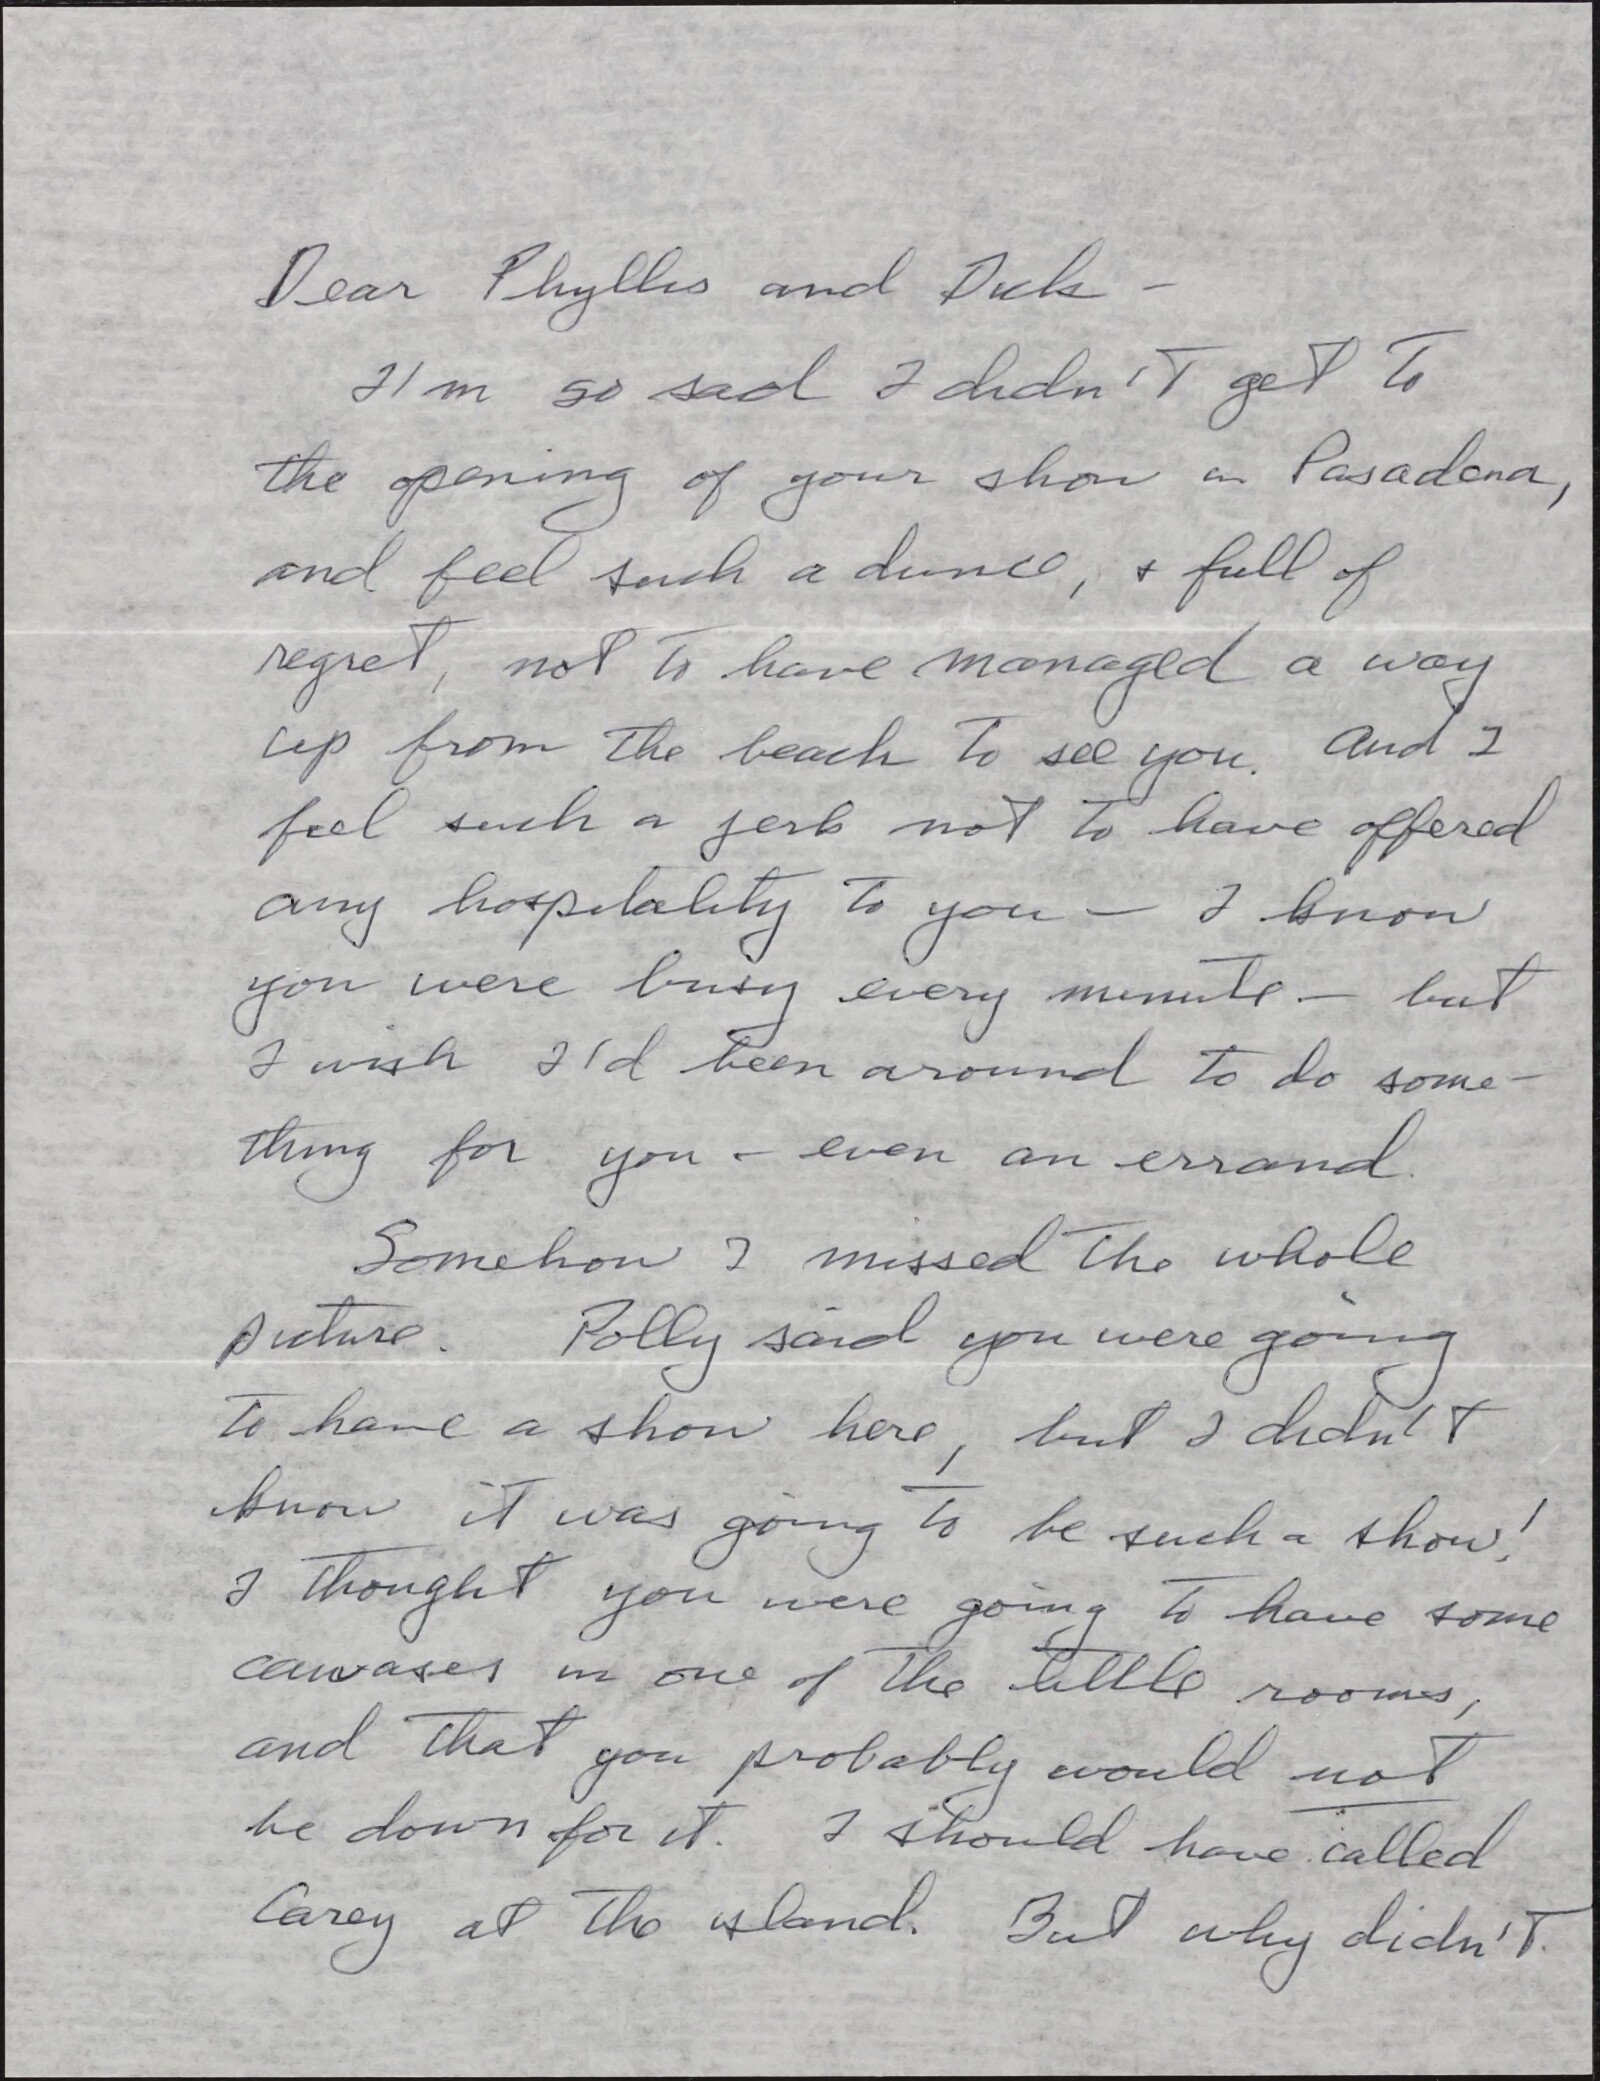 Dear Phyllis and Dick -
I'm so sad I didn't get to
the opening of your show in Pasadena,
and feel such a dunce, + full of
regret, not to have managed a way
up from the beach to see you. And I
feel such a jerk not to have offered
any hospitality to you - I know
you were busy every minute - but
I wish I'd been around to do some-
thing for you - even an errand.
Somehow I missed the whole
picture. Polly said you were going
to have a show here, but I didn't
know it was going to be such a show!
I thought you were going to have some
canvases in one of the little rooms,
and that you probably would not
be down for it. I should have called
Carey at the island. But why didn't